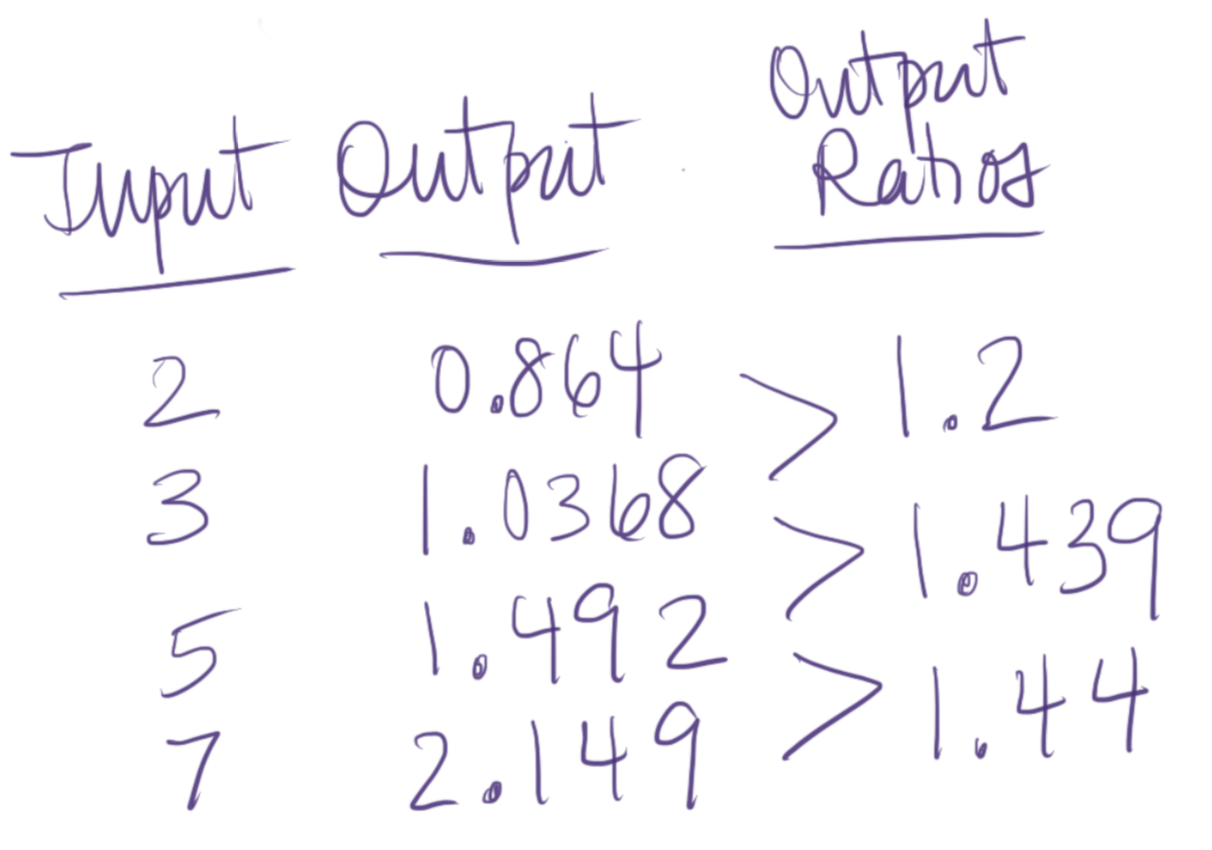 Input Output Output Ratios
2 0.864
> 1.2
3 1.0368
> 1.439
5 1.492
> 1.44
7 2.149